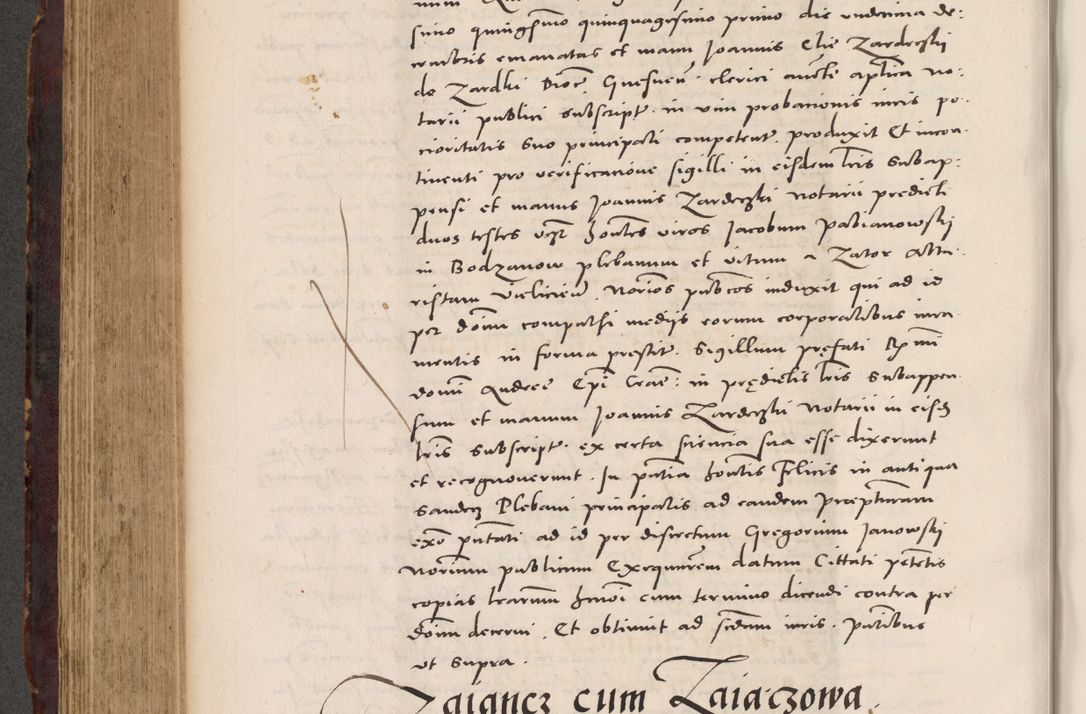 simo quingsimo quinquagesimo primo die undecima de:
cembris emanatas et manu Joannis Elie Zardeczki
de Zardki Dioc. Gnesnen. clerici aucte aplica no:
tarii publici subscript. in vim probacionis iuris po:
cioritatis suo principali competent. produxit Et incon:
tinenti pro verificacione sigilli in eisdem lris subap:
pensi et manus Joannis Zardeczki notarii predicti
duos testes vcz hontes viros Jacobum Pabianowskij
in Bodzanow plebanum et vitum a Zator Alta:
ristam Vielicien. Norios pubcos induxit qui ad id
per dominum compulsi mediis eorum corporalibus iura:
mentis in forma prestit. Sigillum prefati Rmi
domini Andree Epi Crac: in predictis lris subappen
sum et manum Joannis Zardeczki notarii in eisd
lris subscript. ex certa sciencia sua esse dixerunt
et recognoverunt. In pntia hontis Felicis in antiqua
Sandecz Plebani principalis ad eandem preaepturam
exeo pntati ad id per discretum Gregorium Janowskij
Norium publicum Exequutorem datum Cittati petentis
copias lrarum hmoi cum termino dicendi contra per
dominum decerni. Et obtinuit ad scdum iuris. Pntibus
ut supra.
Zaiancz cum Zaiaczowa.